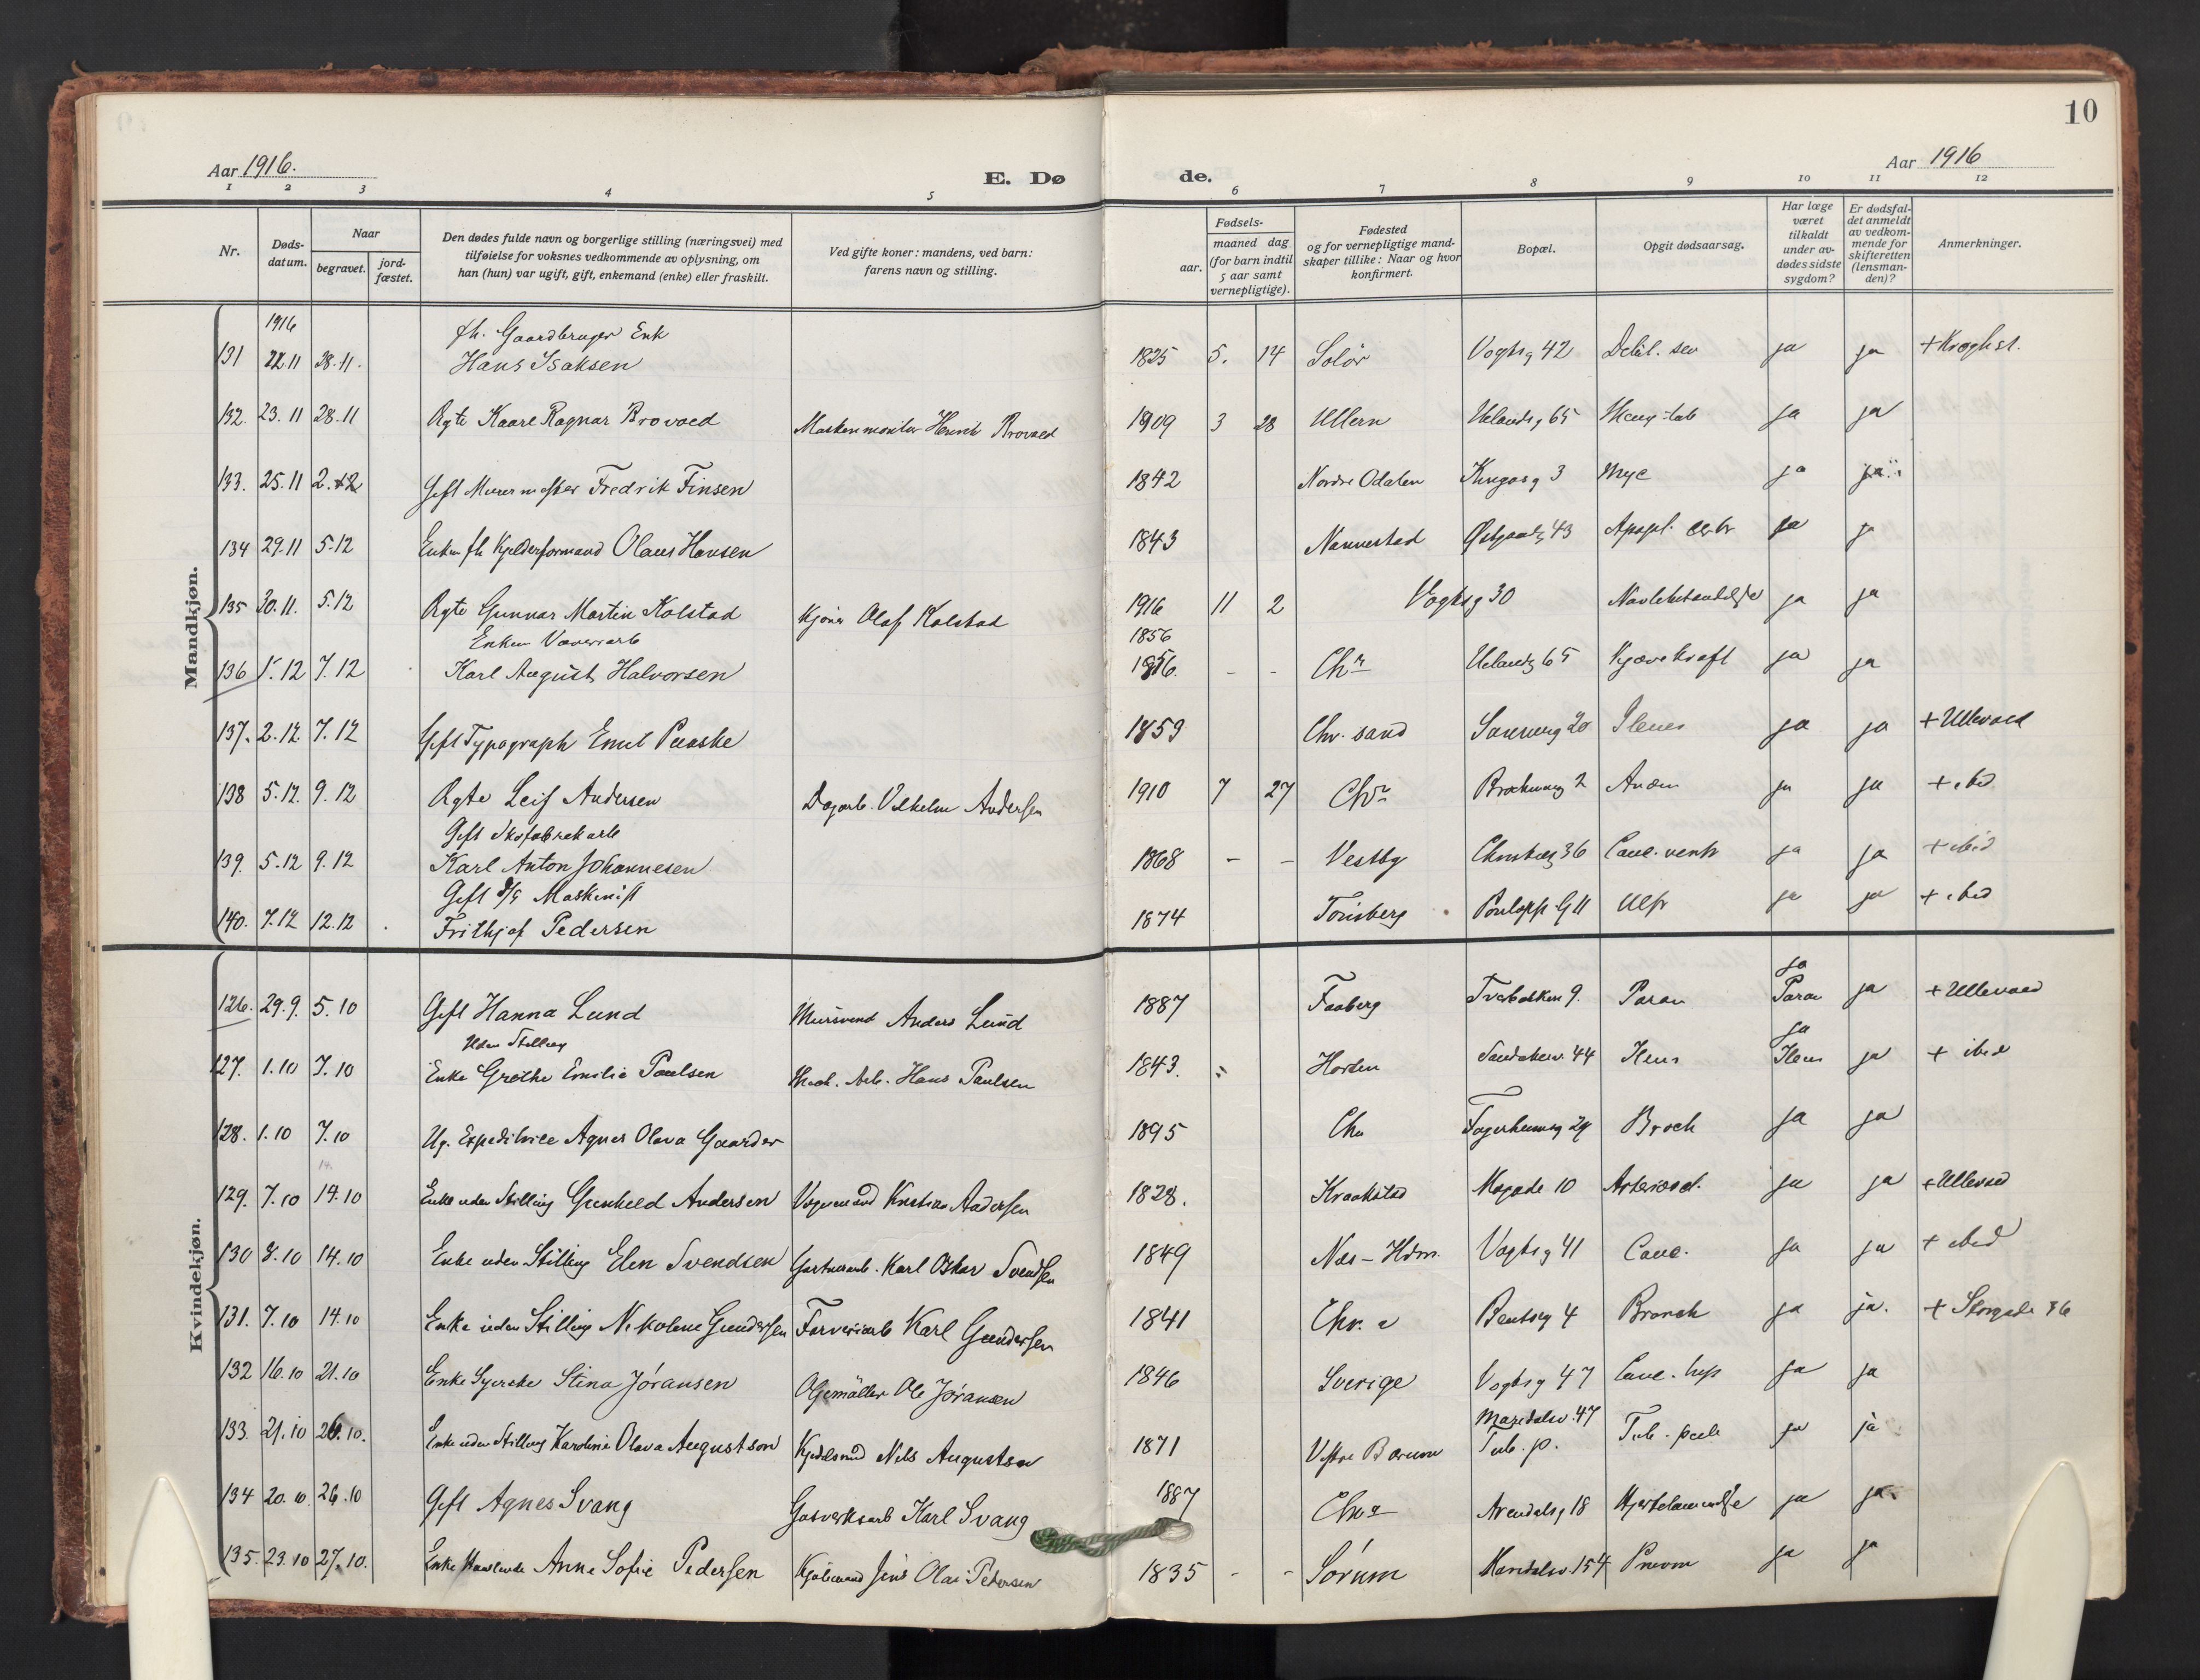 10
Aar 1916.
E. Dø
de.
Aar 1916
1 2 3 4 5 6 7 8 9 10 11 12
Nr.
Døds-
datum.
Naar
begravet.
jord-
fæstet.
Den dødes fulde navn og borgerlige stilling (næringsvei) med
tilføielse for voksnes vedkommende av oplysning, om
han (hun) var ugift, gift, enkemand (enke) eller fraskilt.
Ved gifte koner: mandens, ved barn:
farens navn og stilling.
Fødsels-
aar.
maaned dag
(for barn indtil
5 aar samt
vernepligtige).
Fødested
og for vernepligtige mand-
skaper tillike: Naar og hvor
konfirmert.
Bopæl.
Opgit dødsaarsag.
Har læge
været
tilkaldt
under av-
dødes sidste
sygdom?
Er dødsfal-
det anmeldt
av vedkom-
mende for
skifteretten
(lensman-
den)?
Anmerkninger.
Mandkjøn.
1916
fh. Gaardbruger Enk
131 22.11 28.11. Hans Isaksen 1825 5. 14 Solør Vogtsg 42 Debil. sen ja ja
132. 23.11 28.11 Ægte Kaare Ragnar Brovold Brovold 1909 3 28 Ullern Uelandsg 65 ja ja
133. 25.11 2.12 Gift Murermester Fredrik Finsen 1842 Nordre Odalen Kingosg 3 Myc ja ja
134 29.11 5.12 Enkem fh Kjelderformand Olaus Hansen 1843 Nannestad 43 Apopl. cerebr ja ja
135 30.11. 5.12 Ægte Gunnar Martin Kolstad Kjører Olaf Kolstad 1916 11 2 Vogtsg 30 ja ja
Enkem Væveriarb 1856
136 1.12 7.12 Karl August Halvorsen 1856. - - Chra Uelandsg 65 Kjævekræft ja ja
137. 2.12. 7.12 Gift Typograph Emil Paaske 1859 Chr. sand 20 Ileus ja ja + Ullevaal
138 5.12. 9.12 Ægte Leif Andersen Dagarb. Vilhelm Andersen 1910 7 27 Chra 2 ja ja + ibid
Gift Skofabrikarb
139. 5.12 9.12 Karl Anton Johannesen 1868 - - Vestby 36 Canc. ventr ja ja + ibid
Gift D/S Maskinist
140. 7.12 12.12 Frithjof Pedersen 1874 Tønsberg ja ja + ibid
Kvindekjøn.
ja
126. 29.9. 5.10 Gift Hanna Lund Mursvend Anders Lund 1887 Faaberg 9. ja + Ullevaal
Uden Stilling ja
127. 1.10 7.10 Enke Grethe Emilie Paulsen Arb. Hans Paulsen 1843. Horten Sandakerv. 44 Ileus Ileus ja + ibid
128. 1.10 7.10 Ug. Expeditrice Agnes Olava Gaarder 1895 Chra ja ja
14.
129. 7.10 14.10 Enke uden Stilling Gunhild Andersen Vognmand Kristian Andersen 1828. Kraakstad Møgade 10 ja ja + Ullevaal
130 8.10 14.10 Enke uden Stilling Elen Svendsen Gartnerarb. Karl Oskar Svendsen 1849 Næs-Hdm. Vogtsg 41 Canc. ja ja + ibid
131. 7.10 14.10 Enke uden Stilling Nikoline Gundersen Farveriarb Karl Gundersen 1841 Chr.a Bentseg 4 Bronch ja ja. + Storgade 36
132 16.10 21.10 Enke Syerske Stina Jöransen Oljemöller Ole Jöransen 1846 Sverige Vogtsg 47 Canc. hep ja ja
Maridalsv. 47
133. 21.10 26.10. Enke uden Stilling Karoline Olava Augustson Nils Augustson 1871 Vestre Bærum Tub. p. Tub. pulm ja ja
134 20.10. 26.10 Gift Agnes Svang Gasverksarb Karl Svang 1887 Chra Arendalsg 18 Hjertelammelse ja ja
135. 23.10 27.10. Enke Anne Sofie Pedersen Kjøbmand Jens Olai Pedersen 1835 - - Sørum Maridalsv. 154 Pneum ja ja